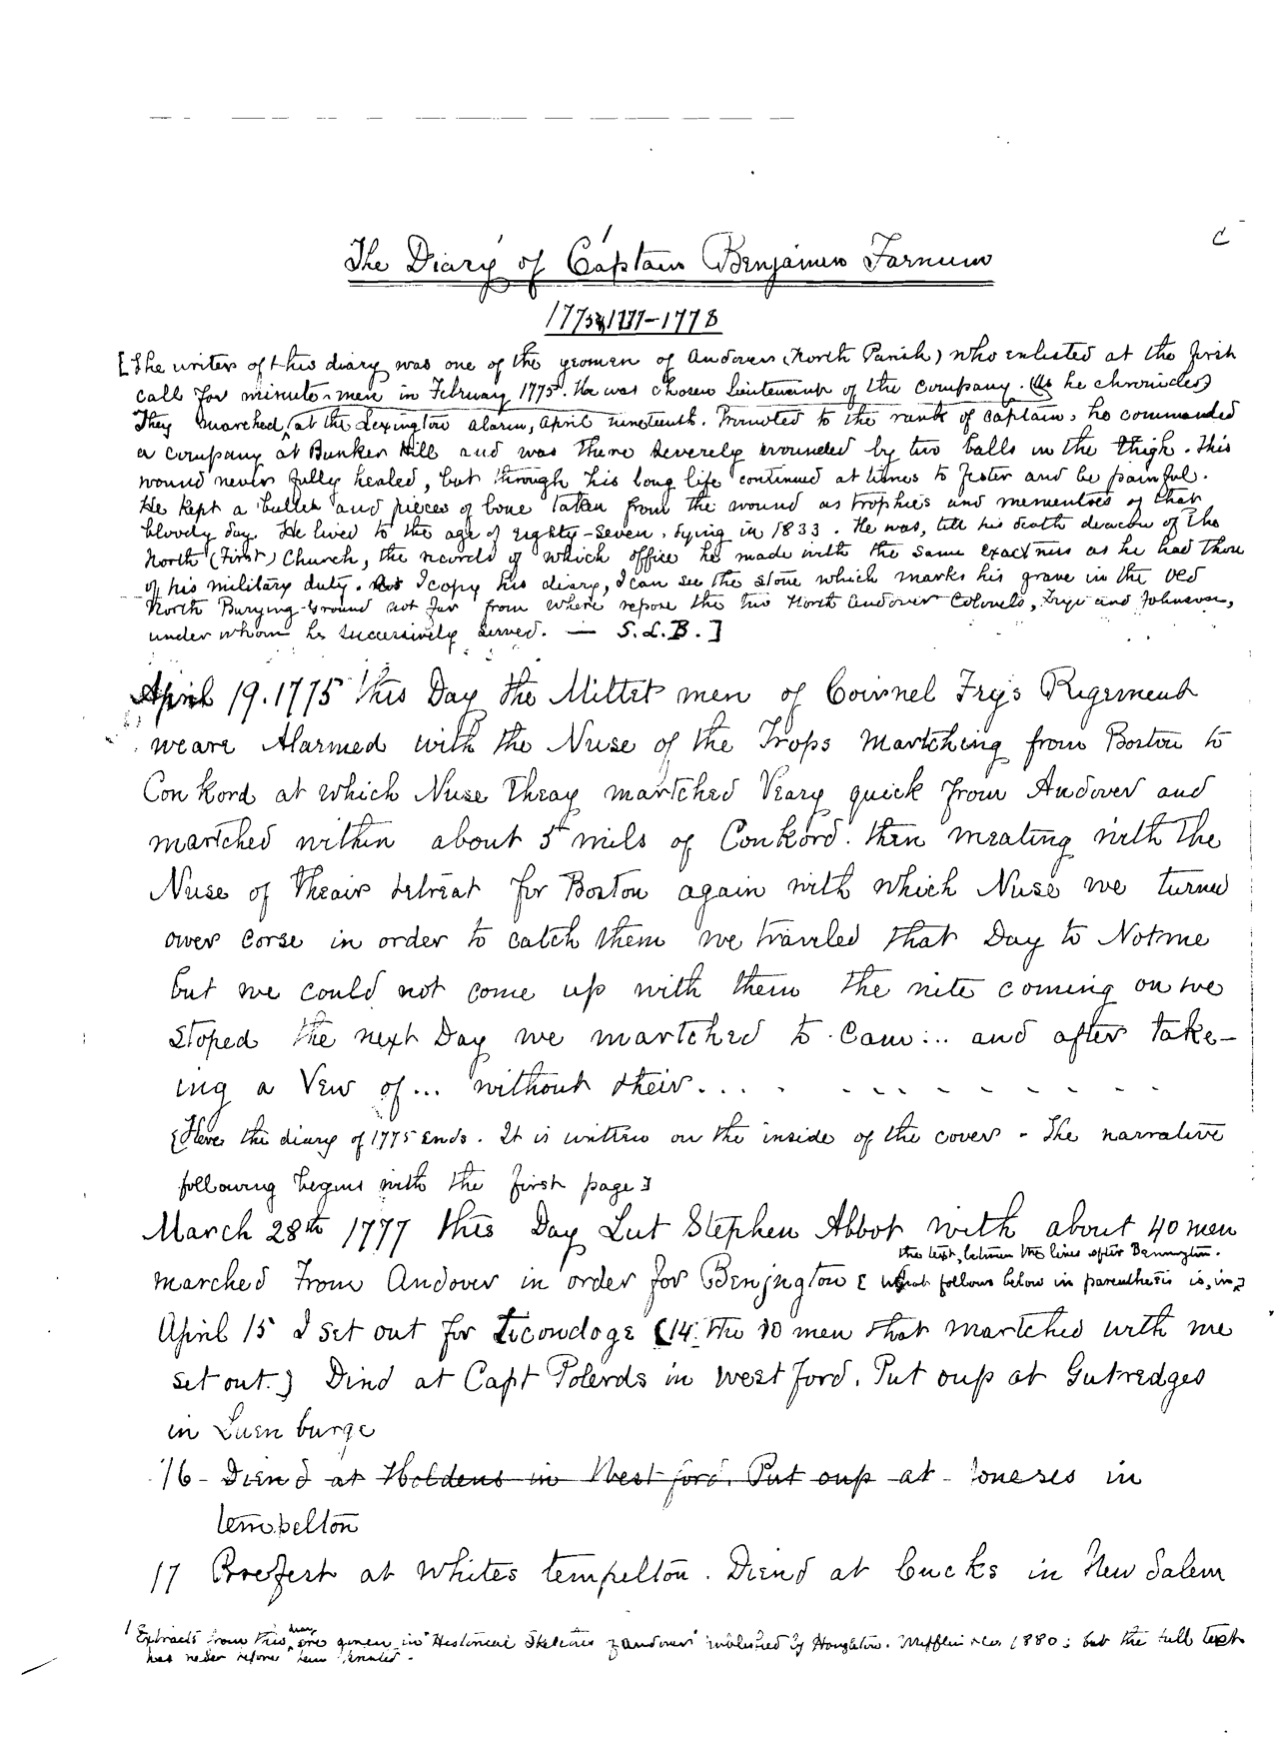 C
The Diary of Captain Benjamin Farnum
1775 & 1777-1778
[The writer of this diary was one of the yeomen of Andover (North Parish) who enlisted at the first
call for minute-men in February 1775. He was chosen Lieutenant of the company. (As he chronicles)
They marched, at the Lexington alarm, April nineteenth. Promoted to the rank of captain, he commanded
a company at Bunker Hill and was there severely wounded by two balls in the thigh. This
wound never fully healed, but through his long life continued at times to fester and be painful.
He kept a bullet and pieces of bone taken from the wound as trophies and mementoes of that
bloody day. He lived to the age of eighty-seven, dying in 1833. He was, till his death deacon of the
North (First) Church, the records of which office he made with the same exactness as he had those
of his military duty. As I copy his diary, I can see the stone which marks his grave in the old
North Burying-Ground not far from where repose the two North Andover Colonels, Frye and Johnson,
under whom he successively served. — S.L.B.]
April 19. 1775 this Day the Mittet men of Coirnel Frys Rigement
weare Alarmed with the Nuse of the Trops Martching from Boston to
Conkord at which Nuse Theay martched Veary quick from Andover and
martched within about 5 mils of Conkord. then meating with the
Nuse of Theair retreat for Boston again with which Nuse we turned
over Corse in order to catch them we travled that Day to Notme
but we could not come up with them the nite coming on we
stoped the next Day we martched to Cam... and after take-
ing a Vew of ... without their....
[Here the diary of 1775 ends. It is written on the inside of the cover - The narrative
following begins with the first page]
March 28th 1777 this Day Lut Stephen Abbot with about 40 men
the text, between the lines after Bennington.
marched From Andover in order for Benjngton [ what follows below in parenthesis is, in]
April 15 I set out for Ticondoge (14. the 10 men that martched with me
set out.) Dind at Capt Polerds in west ford. Put oup at Gutredges
in Luen burge
16 - Diend at Holdens in West ford. Put oup at - Joneses in
tempelton
17 Breefest at Whites tempelton. Diend at Cucks in New Salem
1 Extracts from this diary are given in "Historical Sketches of Andover" published by Houghton, Mifflin & Co. 1880; but the full text
has never before been printed.